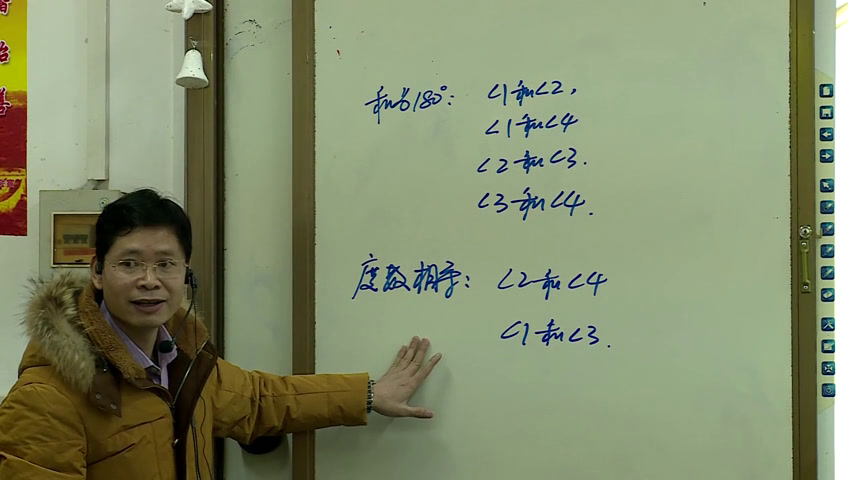 和为180°: ∠1和∠2,
∠1和∠4
∠2和∠3.
∠3和∠4.
度数相等: ∠2和∠4
∠1和∠3.